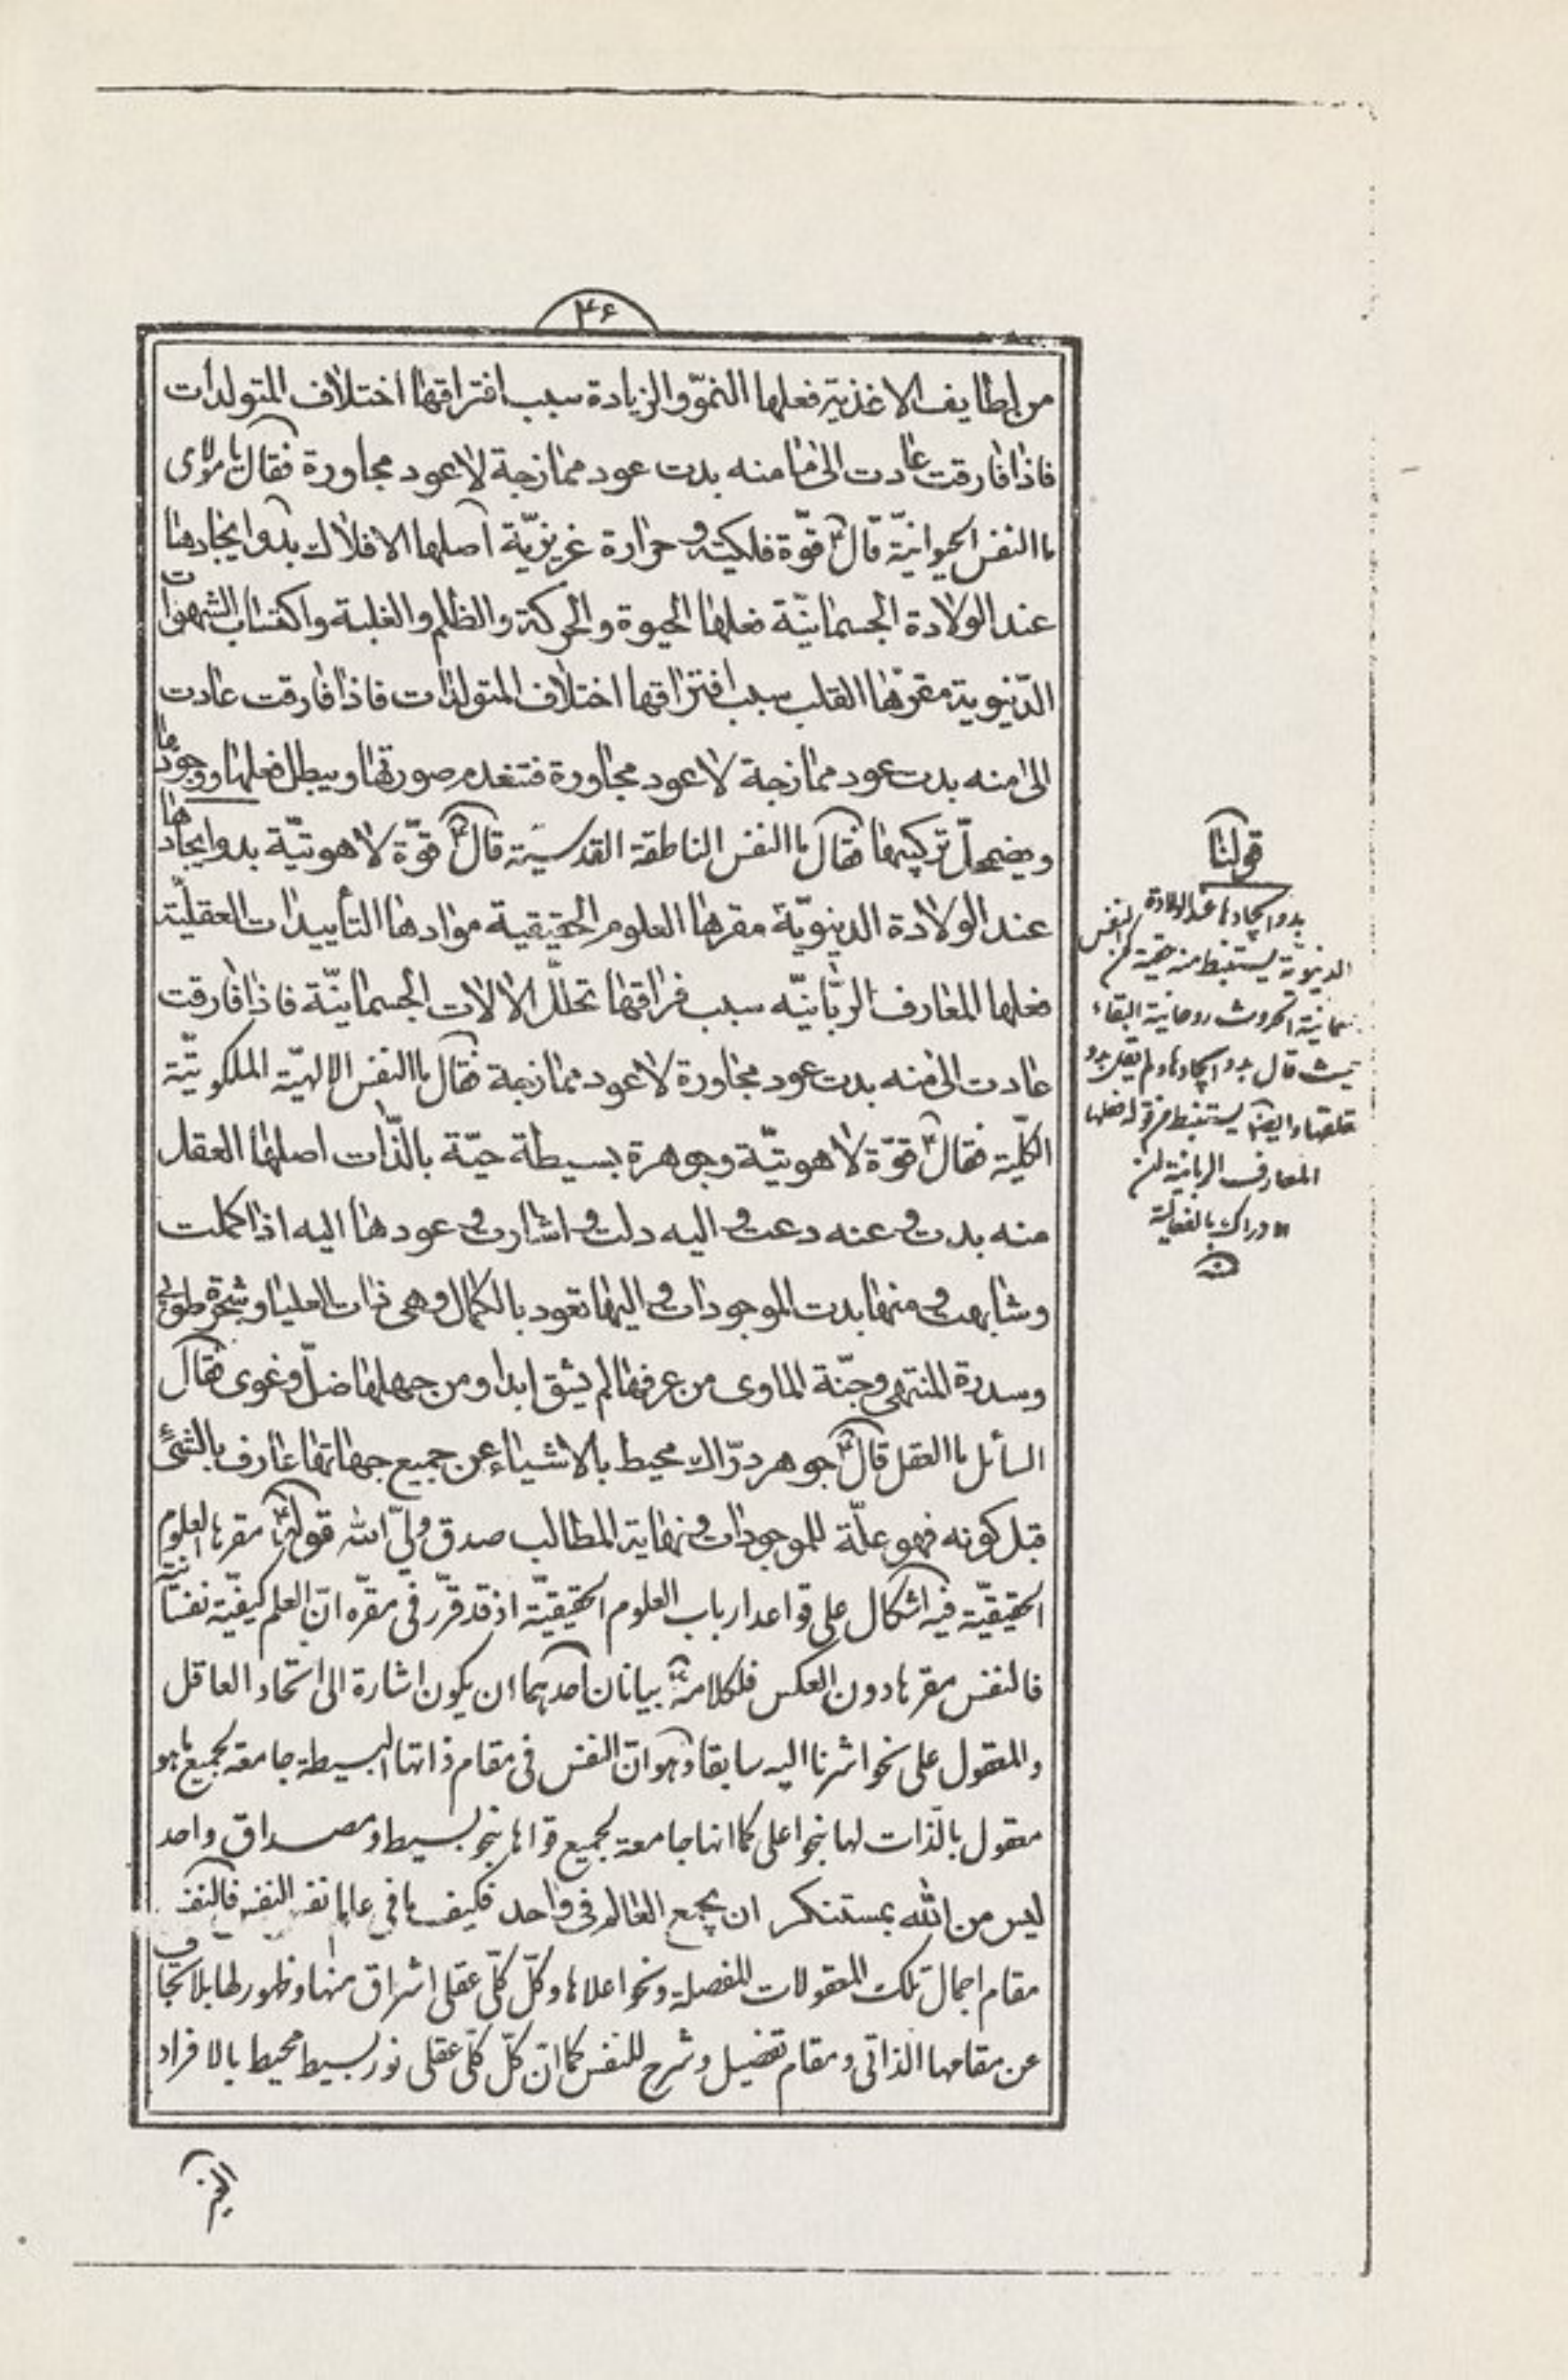 ۴۶
من لطايف الاغذية فعلها النموّ والزيادة سبب افتراقها اختلاف المتولدات
فاذا فارقت عادت الى ما منه بدت عود ممازجة لا عود مجاورة فقال يا مولاى
ما النفس الحيوانيّة قال ع قوّة فلكية و حرارة غريزيّة اصلها الافلاك بدو ايجادها
عند الولادة الجسمانيّة فعلها الحيوة والحركة والظلم والغلبة واكتساب الشهوات
الدّنيوية مقرّها القلب سبب افتراقها اختلاف المتولدات فاذا فارقت عادت
الى ما منه بدت عود ممازجة لا عود مجاورة فتنعدم صورتها ويبطل فعلها ووجودها
ويضمحلّ تركيبها فقال ما النفس الناطقة القدسيّة قال ع قوّة لاهوتيّة بدو ايجادها
عند الولادة الدنيويّة مقرها العلوم الحقيقية موادها التأييدات العقليّة
فعلها المعارف الربّانيّه سبب فراقها تحلّل الالات الجسمانيّة فاذا فارقت
عادت الى ما منه بدت عود مجاورة لا عود ممازجة فقال ما النفس الإلهيّة الملكوتيّة
الكلّية فقال ع قوّة لاهوتيّة وجوهرة بسيطة حيّة بالذّات اصلها العقل
منه بدت و عنه دعت و اليه دلت و اشارت و عودها اليه اذا كملت
وشابهت و منها بدت الموجودات و اليها تعود بالكمال و هى ذات العليا و شجرة طوبى
وسدرة المنتهى وجنّة الماوى من عرفها لم يشق ابدا ومن جهلها ضلّ وغوى فقال
السائل ما العقل قال ع جوهر درّاك محيط بالاشياء عن جميع جهاتها عارف بالشئ
قبل كونه فهو علّة للموجودات و نهاية المطالب صدق ولىّ الله قوله ع مقرها العلوم
الحقيقيّة فيه اشكال على قواعد ارباب العلوم الحقيقيّة اذ قد قرّر فى مقرّه انّ العلم كيفيّة نفسانية
فالنفس مقرها دون العكس فلكلامه ع بيانان احدهما ان يكون اشارة الى اتحاد العاقل
والمعقول على نحو اشرنا اليه سابقا وهو انّ النفس فى مقام ذاتها البسيطة جامعة لجميع ما هو
معقول بالذات لها بنحو اعلى كما انها جامعة لجميع قواها بنحو بسيط ومصداق واحد
ليس من الله بمستنكر ان يجمع العالم فى واحد فكيف ما فى عالم نفس النفس فالنفس
مقام اجمال تلك المعقولات المفصلة ونحو اعلاها وكلّ كلّى عقلى اشراق منها وظهور لها بلا تجاف
عن مقامها الذاتى و مقام تفصيل و شرح للنفس كما انّ كلّ كلّى عقلى نور بسيط محيط بالافراد
قولنا
بدو ايجادها عند الولادة
الدنيويّة يستنبط منه جسمية النفس
الحدوث روحانية البقاء
حيث قال بدو ايجادها ولم يقل بدو
وايضا يستنبط من قوله فعلها
المعارف الربانية ان
الادراك بالفعالية